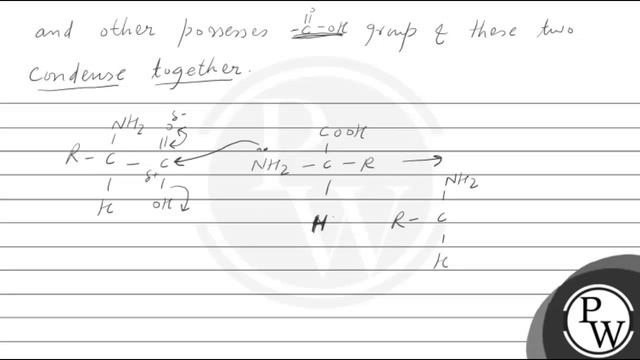 O
||
and other possesses -C-OH group & these two
condense together.
NH2 Oδ-
| ||
R - C - C
| δ+ |
H OH
COOH
|
NH2 - C - R →
|
H
NH2
|
R - C
|
H
PW